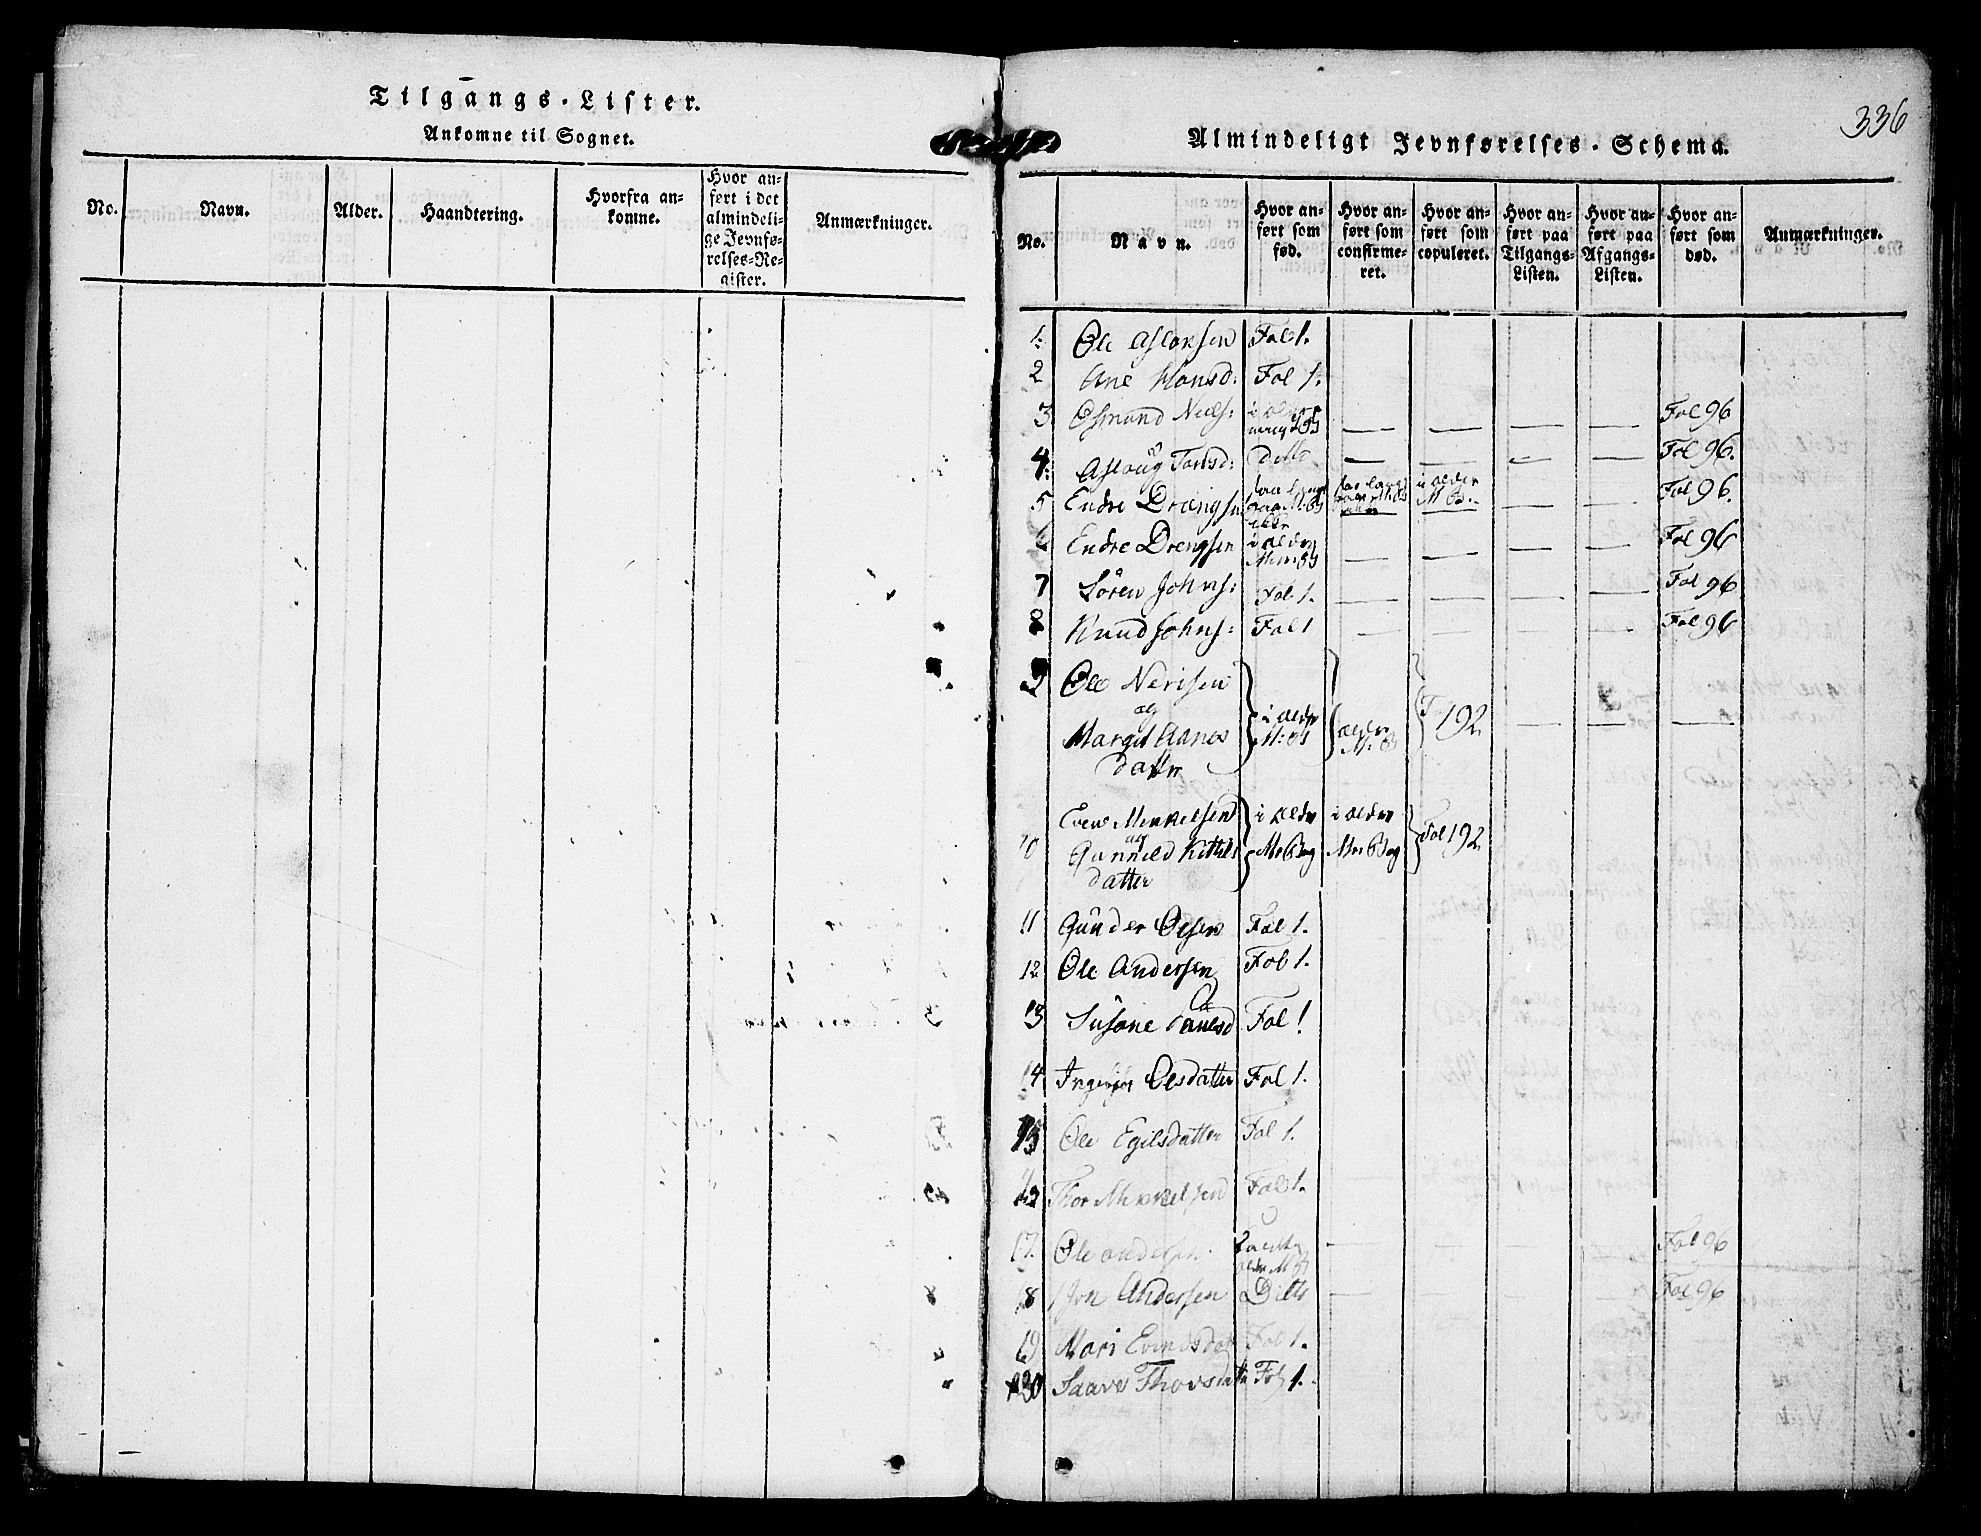 Tilgangs-Lister.
Ankomne til Sognet.
No.
Navn.
Alder.
Haandtering.
Hvorfra an-
komne.
Hvor an-
ført i det
almindeli-
ge Jevnfø-
relses-Re-
gister.
Anmærkninger.
336
Almindeligt Jevnførelses-Schema.
No.
Navn.
Hvor an-
ført som
fød.
Hvor an-
ført som
confirme-
ret.
Hvor an-
ført som
copuleret.
Hvor an-
ført paa
Tilgangs-
Listen.
Hvor an-
ført paa
Afgangs-
Listen.
Hvor an-
ført som
død.
Anmærkninger.
1. Ole Aslaksen Fol 1.
2 Ane Hansd: Fol 1.
3 Osmund Niels: i ældre — — — — Fol 96
4. Aslaug Tarsd: Ditto — — — — Fol 96.
5 Endre Drengsen i ældre M B. — — Fol 96.
6 Endre Drengsen i ældre — — — — Fol 96
7 Søren Johns: Fol 1. — — — — Fol 96
8 Knud Johns: Fol 1 — — — — Fol 96
9 Ole Nerisen
og
Margit Aanos i ældre ældre 192 — — —
datter
Even Mikkelsen i ældre i ældre
og
10 Gunnild Kittils M Bog M Bog Fol 192
datter
11 Gunder Olsen Fol 1.
12 Ole Andersen Fol 1.
13 Susane Paulsd Fol 1
14 Ingeborg Olsdatter Fol 1.
15 Ole Egilsdatter Fol 1.
Thor Mikkelsen Fol 1.
17. Ole Andersen — Fol 96
18 Jon Andersen Ditto — Fol 96
19 Mari Evendsdat Fol 1.
20 Saave Thovsdatt Fol 1.